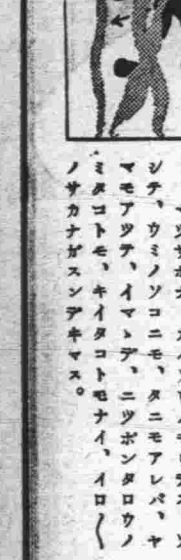 シテ、ウミノソコニモ、タニモアレバ、ヤ
マモアツテ、イマヽデ、ニツポンタロウノ
ミタコトモ、キイタコトモナイ、イロ〱
ノサカナガスンデキマス。